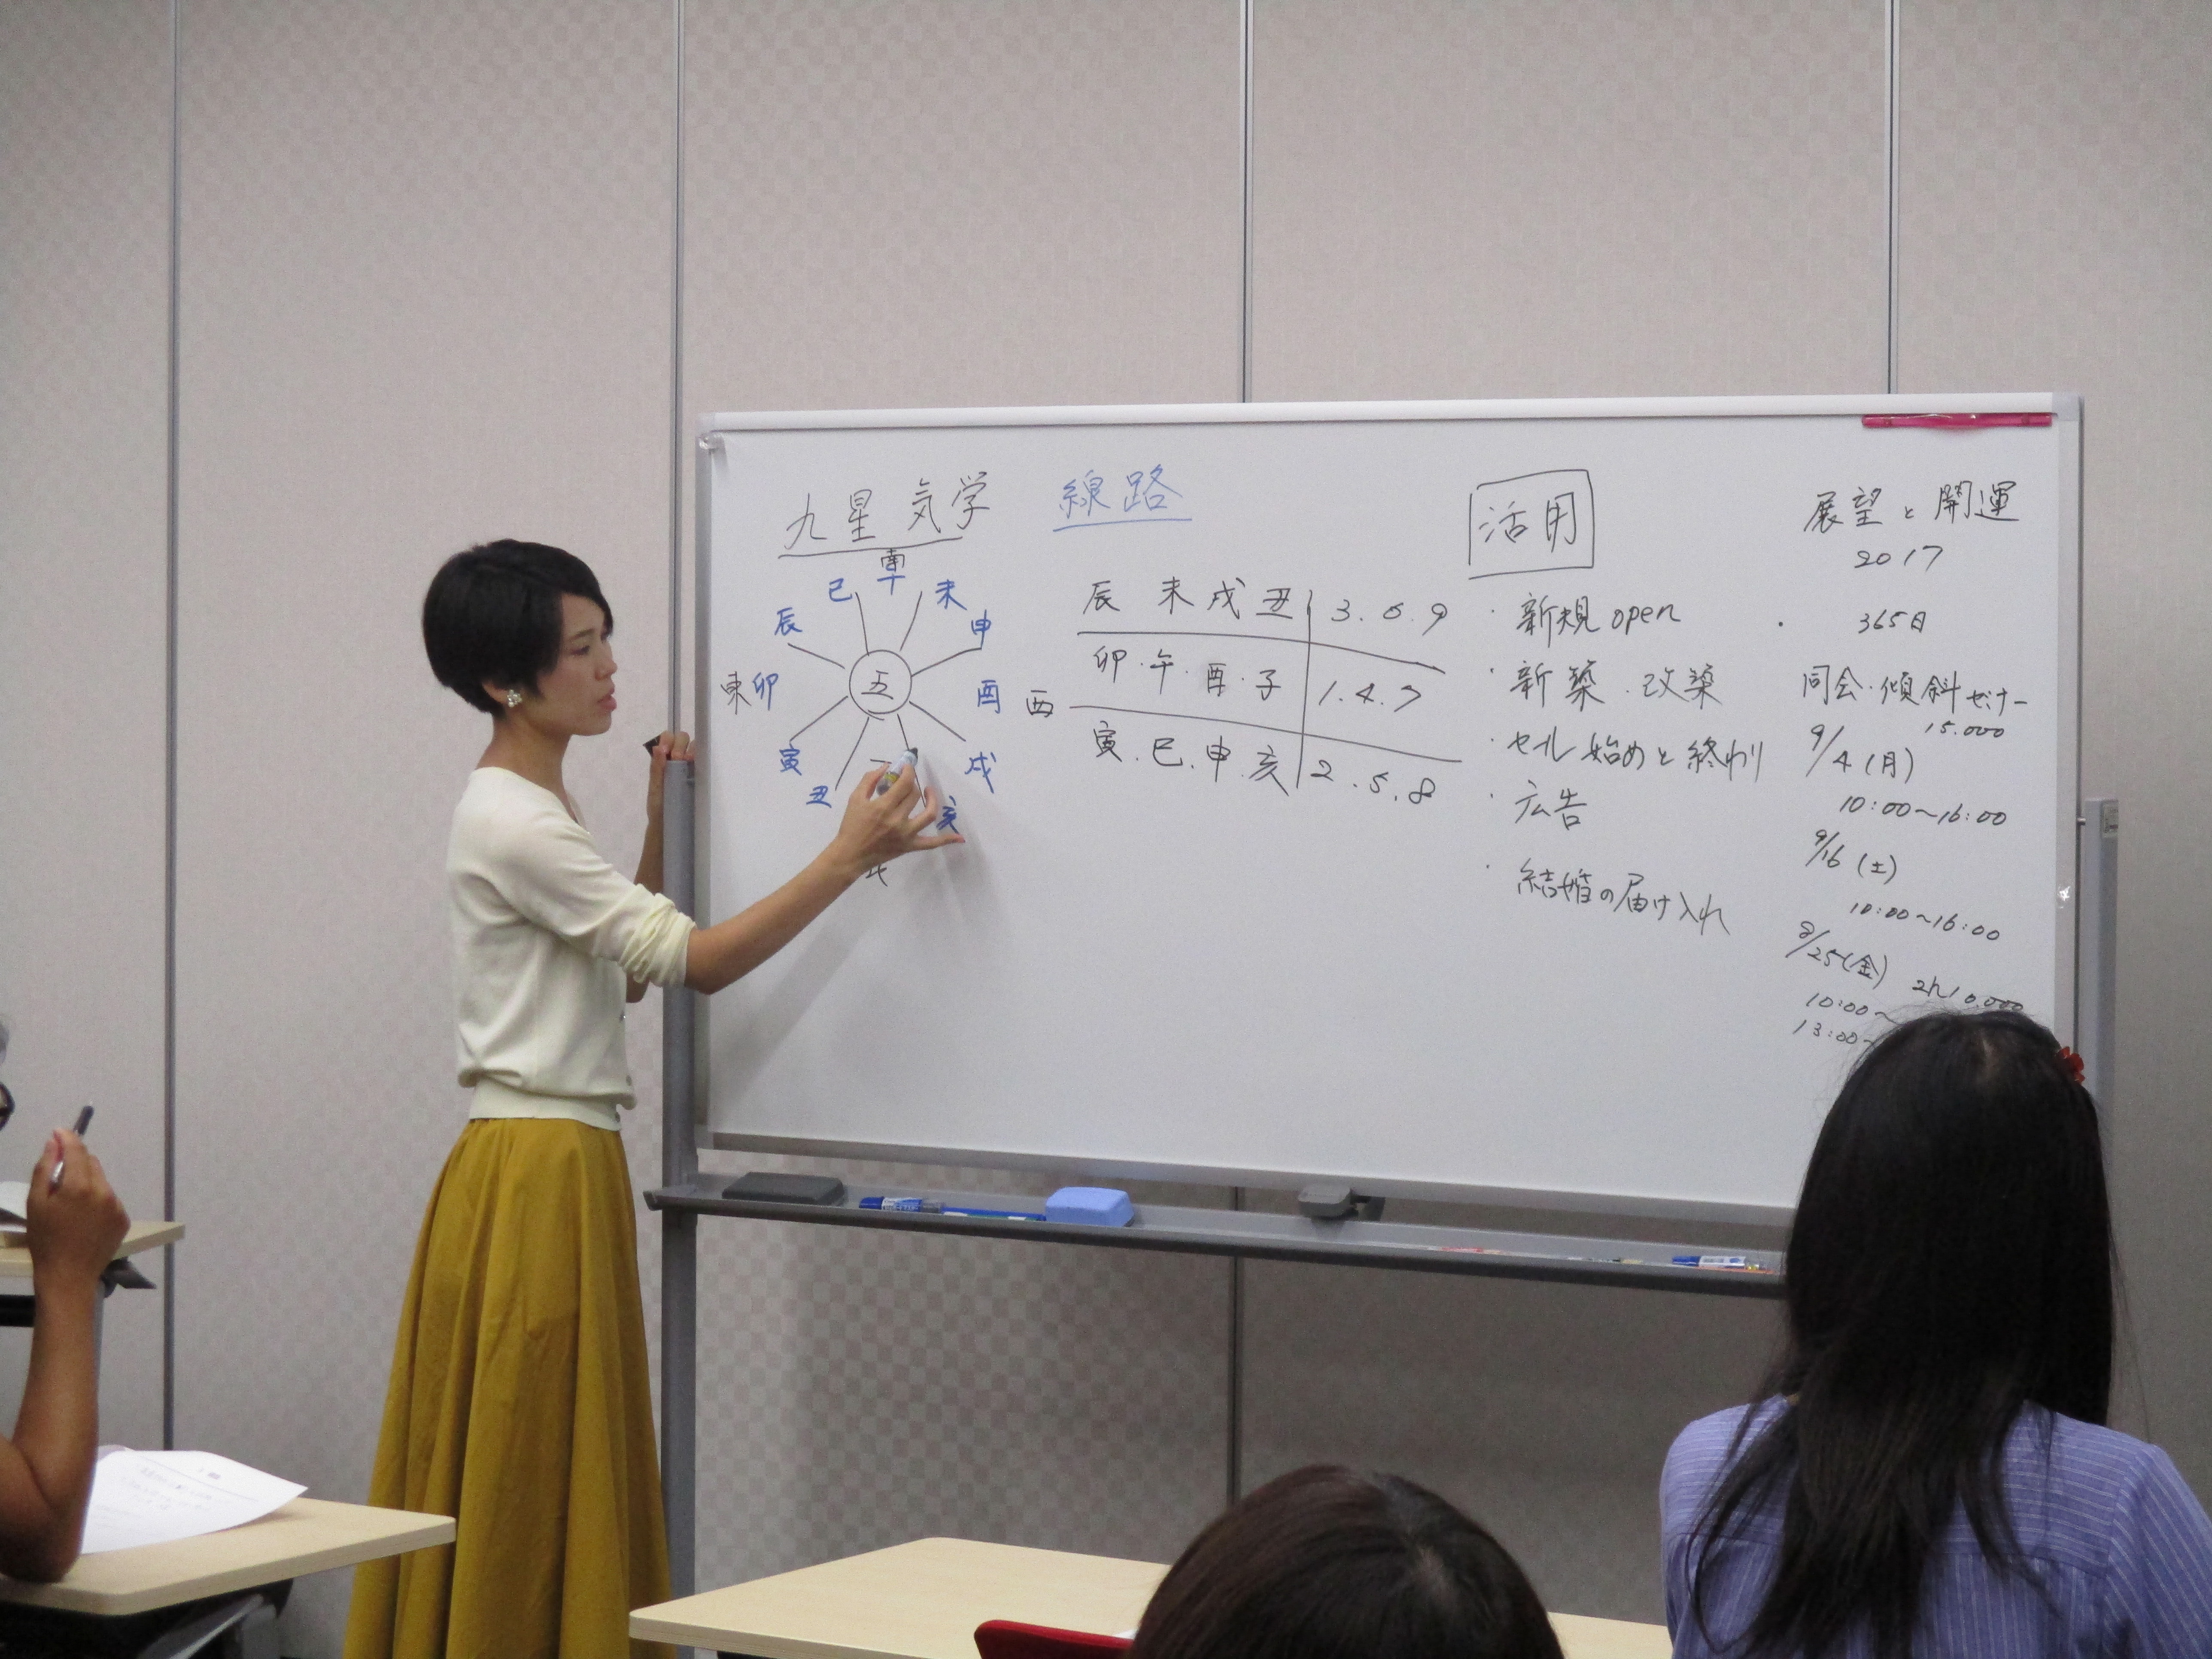 九星気学
線路
南
巳 午 未
辰 申
東 卯 五 酉 西
寅 戌
丑 亥
北
辰 未 戌 丑 3.6.9
卯・午・酉・子 1.4.7
寅.巳.申.亥 2.5.8
活用
・新規open
・新築.改築
・セール始めと終わり
・広告
・結婚の届け入れ
展望と開運
2017
・365日
同会・傾斜セミナー
15.000
9/4(月)
10:00〜16:00
9/16(土)
10:00〜16:00
8/25(金) 2h10,000
10:00〜
13:00〜